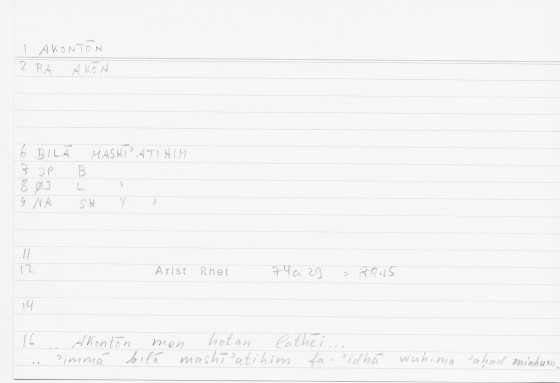 1 AKONTŌN
2 BA AKŌN
6 BILĀ MASHĪʾATIHIM
7 JP B
8 ØJ L ʾ
9 NA SH Y ʾ
11
12 Arist Rhet 74a29 = 89.15
14
16 .. Akontōn men hotan lathēi...
.. ʾimmā bilā mashīʾatihim fa-ʾidhā wuhima ʾaḥad minhum,